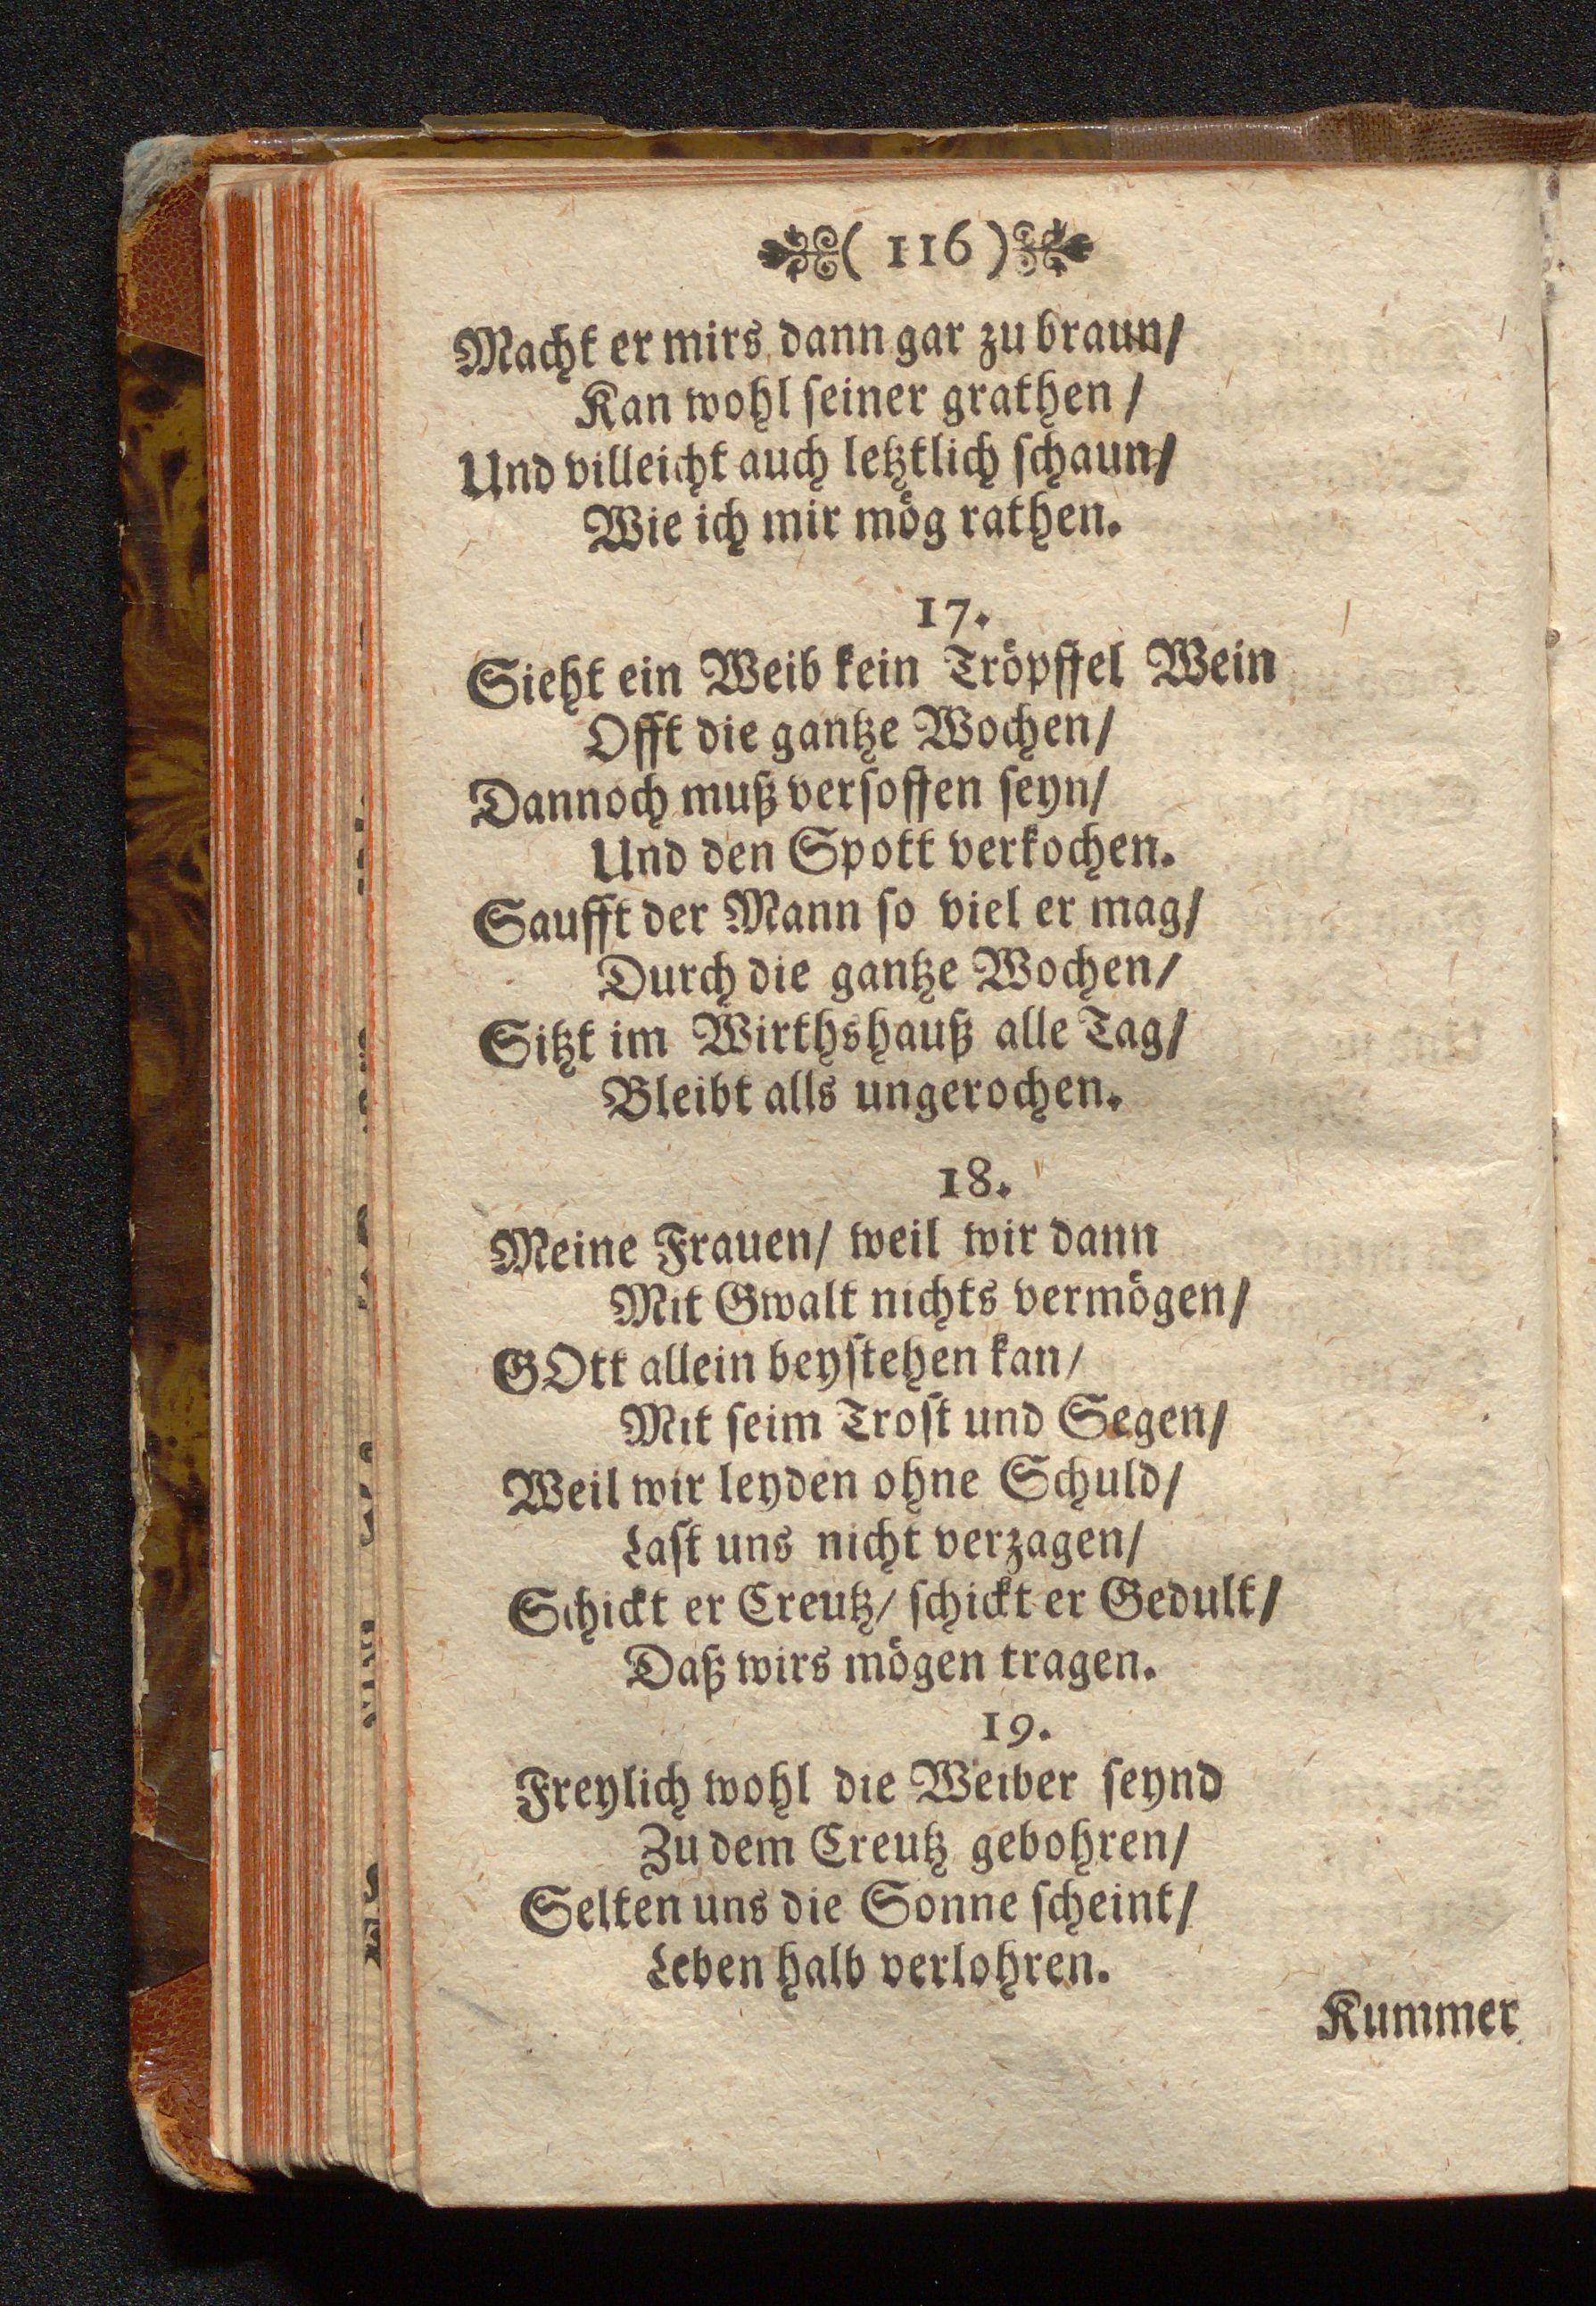 ( 116 )
Macht er mirs dann gar zu braun/
Kan wohl seiner grathen /
Und villeicht auch letztlich schaun/
Wie ich mir mög rathen.
17.
Sieht ein Weib kein Tröpffel Wein
Offt die gantze Wochen/
Dannoch muß versoffen seyn/
Und den Spott verkochen.
Saufft der Mann so viel er mag/
Durch die gantze Wochen/
Sitzt im Wirthshauß alle Tag/
Bleibt alls ungerochen.
18.
Meine Frauen/ weil wir dann
Mit Gwalt nichts vermögen/
GOtt allein beystehen kan/
Mit seim Trost und Segen/
Weil wir leyden ohne Schuld/
Last uns nicht verzagen/
Schickt er Creutz/ schickt er Gedult/
Daß wirs mögen tragen.
19.
Freylich wohl die Weiber seynd
Zu dem Creutz gebohren/
Selten uns die Sonne scheint/
Leben halb verlohren.
Kummer